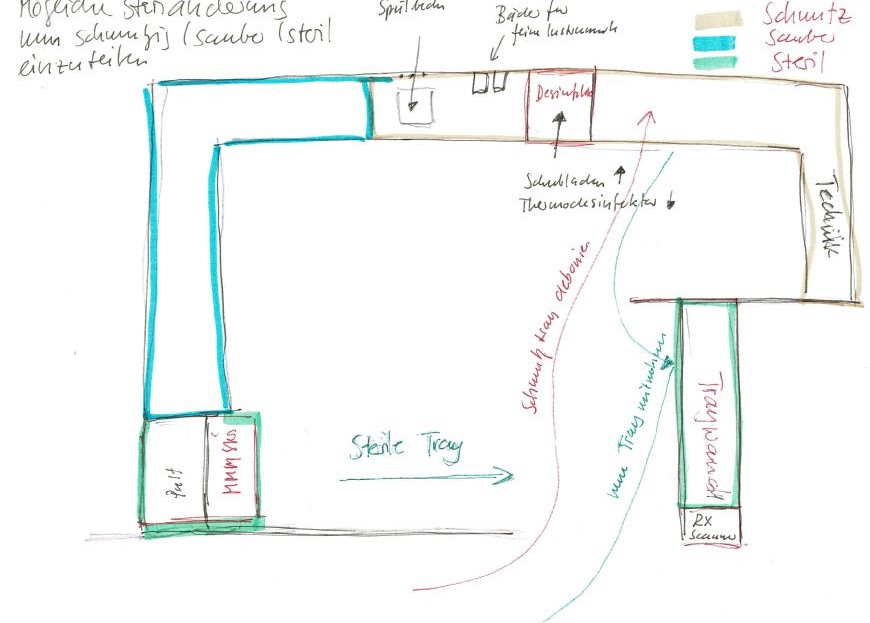 Mögliche Steriänderung
um schmutzig / sauber / steril
einzuteilen
Spülbecken
Bäder für
feine Instrumente
Schmutz
Sauber
Steril
Desinfektor
Schubladen
Thermodesinfektor
Technik
Schmutztray deponieren
neue Trays mitnehmen
Traywand
RX
Scanner
Sterile Tray
Pult